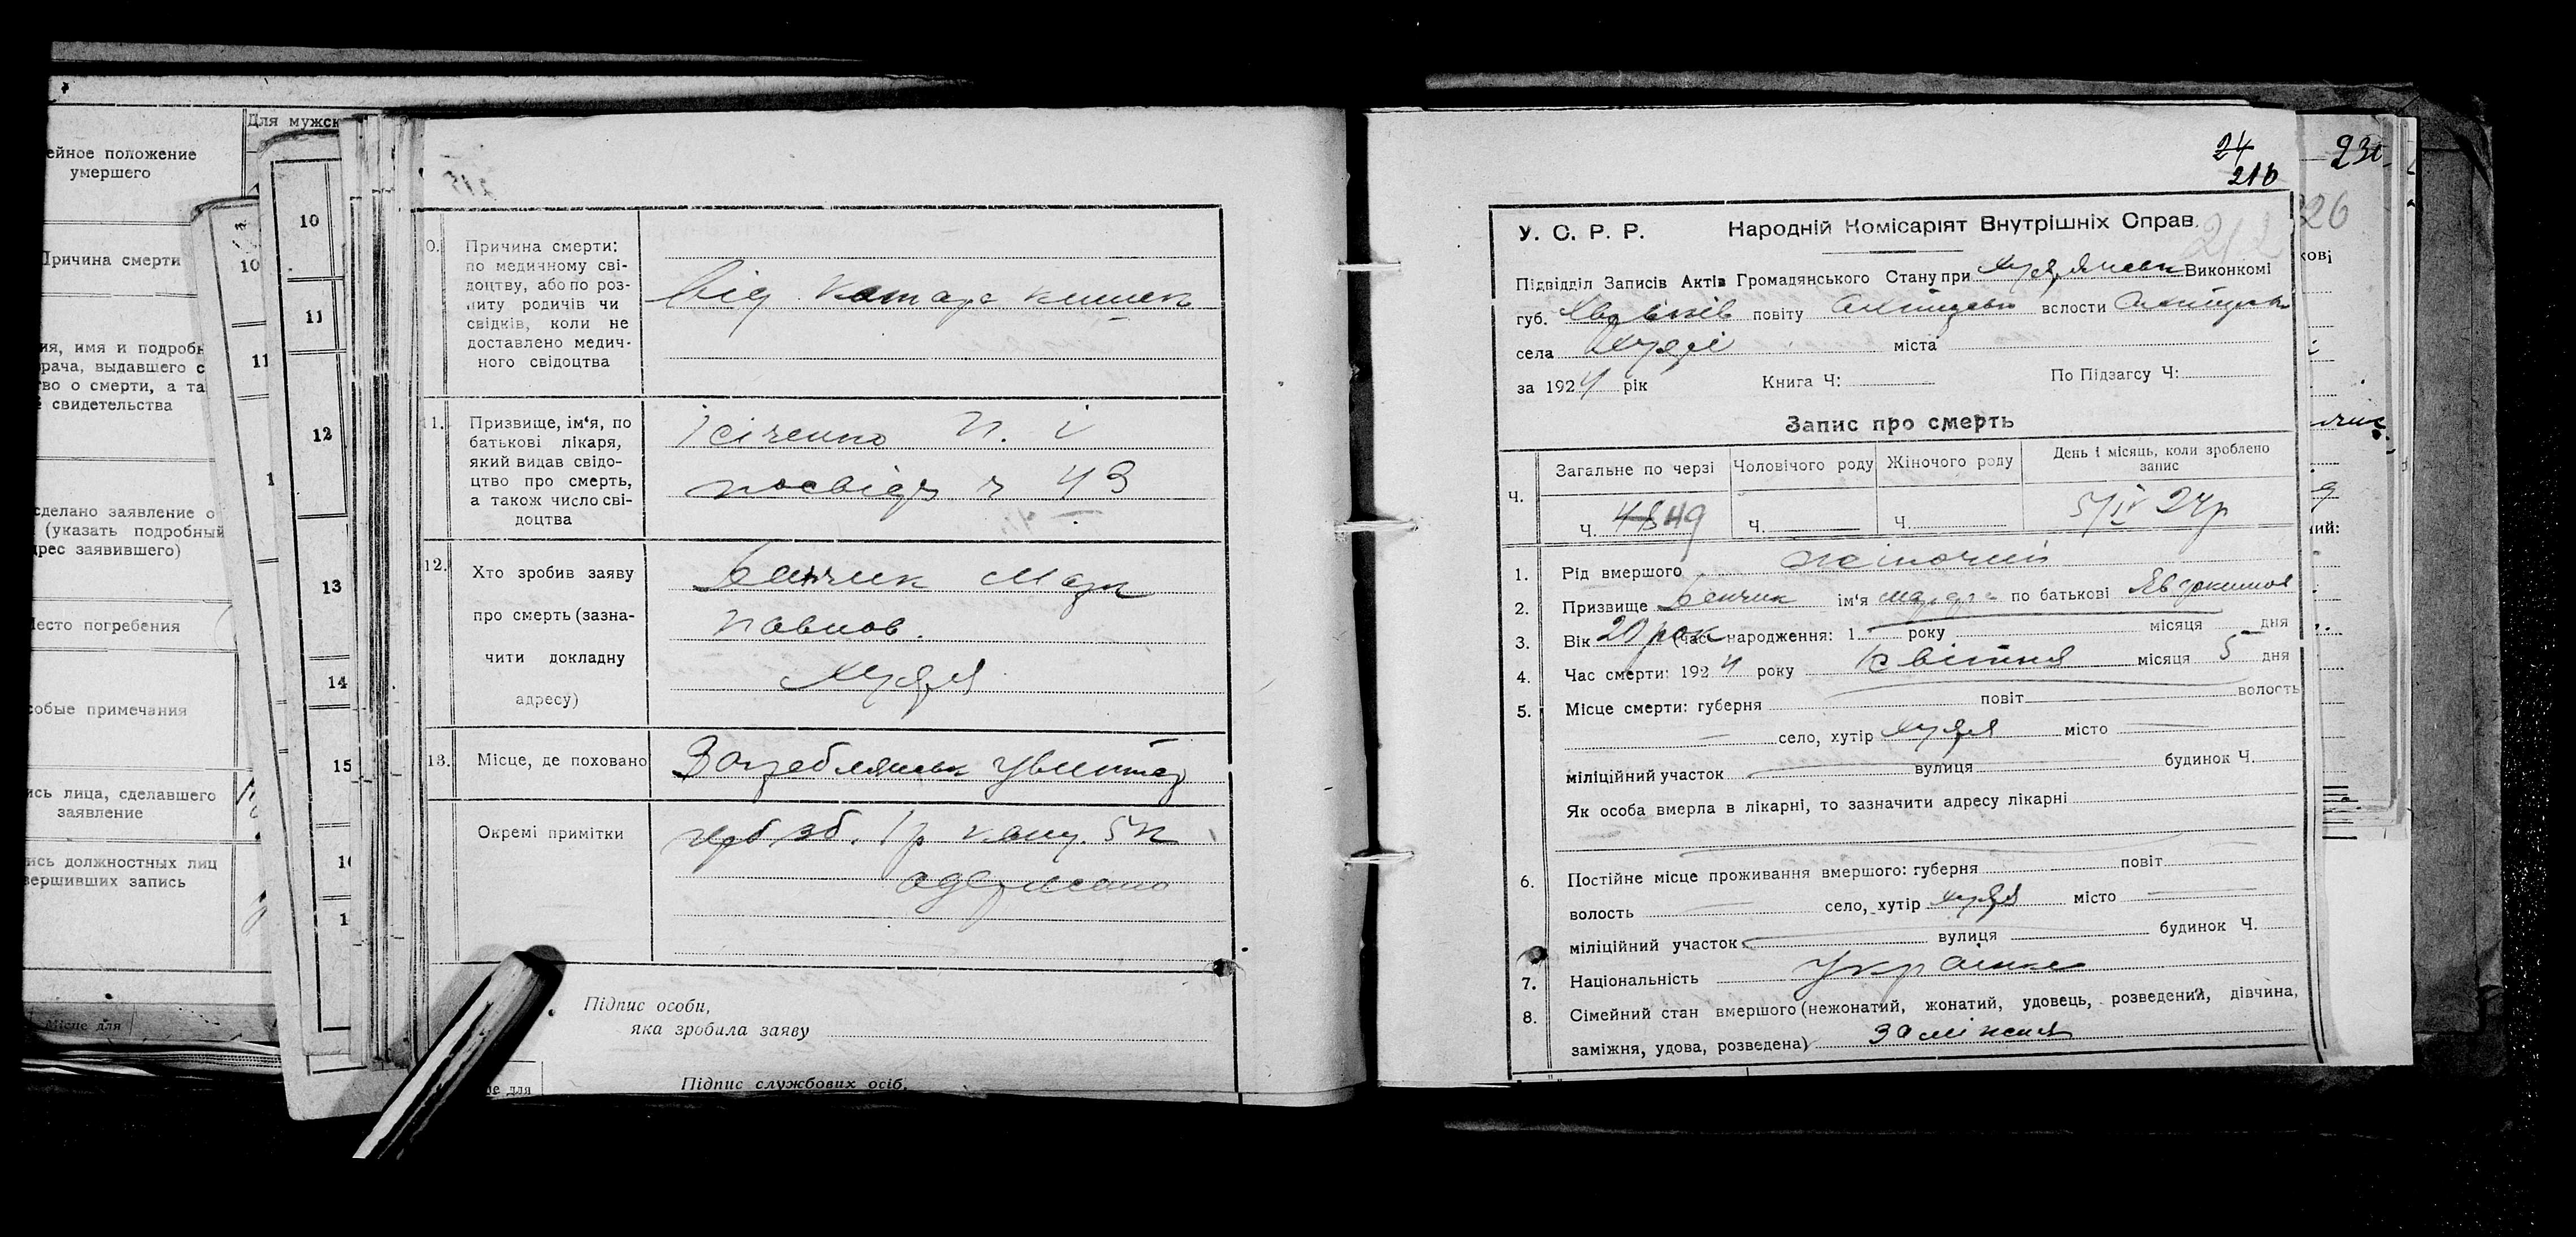 Для мужск
ейное положение
умершего
Причина смерти
ия, имя и подробн
рача, выдавшего с
тво о смерти, а та
свидетельства
сделано заявление о
(указать подробный
дрес заявившего)
Место погребения
собые примечания
ись лица, сделавшего
заявление
ись должностных лиц
вершивших запись
Місце для
10
11
1
10
11
12
13
14
15
1
0. Причина смерти:
по медичному сві-
доцтву, або по роз-
питу родичів чи
свідків, коли не
доставлено медич-
ного свідоцтва
Від катара кишек
11. Призвище, ім'я, по
батькові лікаря,
який видав свідо-
цтво про смерть,
а також число сві-
доцтва
Ісіченко П. І
посвідч ч 43
12. Хто зробив заяву
про смерть (зазна-
чити докладну
адресу)
Бенчик Марк
Павлов.
13. Місце, де поховано
Загреблянськ цвинтар
Окремі примітки
герб зб. 1р канц. 5к
одержано
Підпис особи,
яка зробила заяву
Підпис службових осіб.
це для
24
216
230
326
212
У. С. Р. Р. Народній Комісаріят Внутрішніх Справ.
Підвідділ Записів Актів Громадянського Стану при Виконкомі
губ. Харьків повіту волости
села міста
за 1924 рік Книга Ч: По Підзагсу Ч:
Запис про смерть
Ч. Загальне по черзі Чоловічого роду Жіночого роду День і місяць, коли зроблено
запис
Ч. 4849 Ч. Ч. 5/IV 24р
1. Рід вмершого жіночий
2. Призвище Бенчик ім'я по батькові Явдокимов
3. Вік 20 рок (час народження: 1 року місяця дня
4. Час смерти: 1924 року Квітня місяця 5 дня
5. Місце смерти: губерня повіт волость
село, хутір місто
міліційний участок вулиця будинок Ч.
Як особа вмерла в лікарні, то зазначити адресу лікарні
6. Постійне місце проживання вмершого: губерня повіт
волость село, хутір місто
міліційний участок вулиця будинок Ч.
7. Національність Українка
8. Сімейний стан вмершого (нежонатий, жонатий, удовець, розведений, дівчина,
заміжня, удова, розведена) заміжня